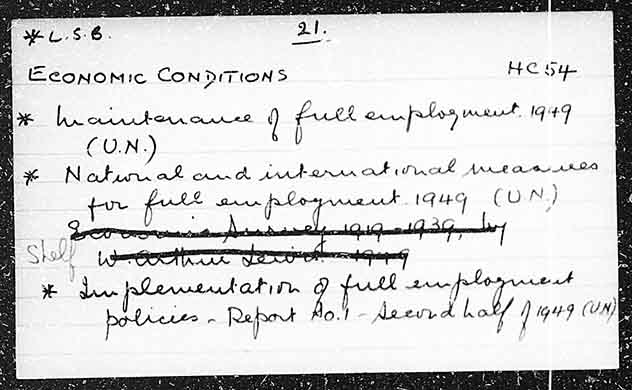 * L.S.B. 21.
ECONOMIC CONDITIONS HC54
* Maintenance of full employment. 1949
(U.N.)
* National and international measures
for full employment. 1949 (U.N.)
Economic Survey 1919-1939, by
Shelf W. Arthur Lewis - 1949
* Implementation of full employment
policies - Report No.1 - Second half of 1949 (UN)